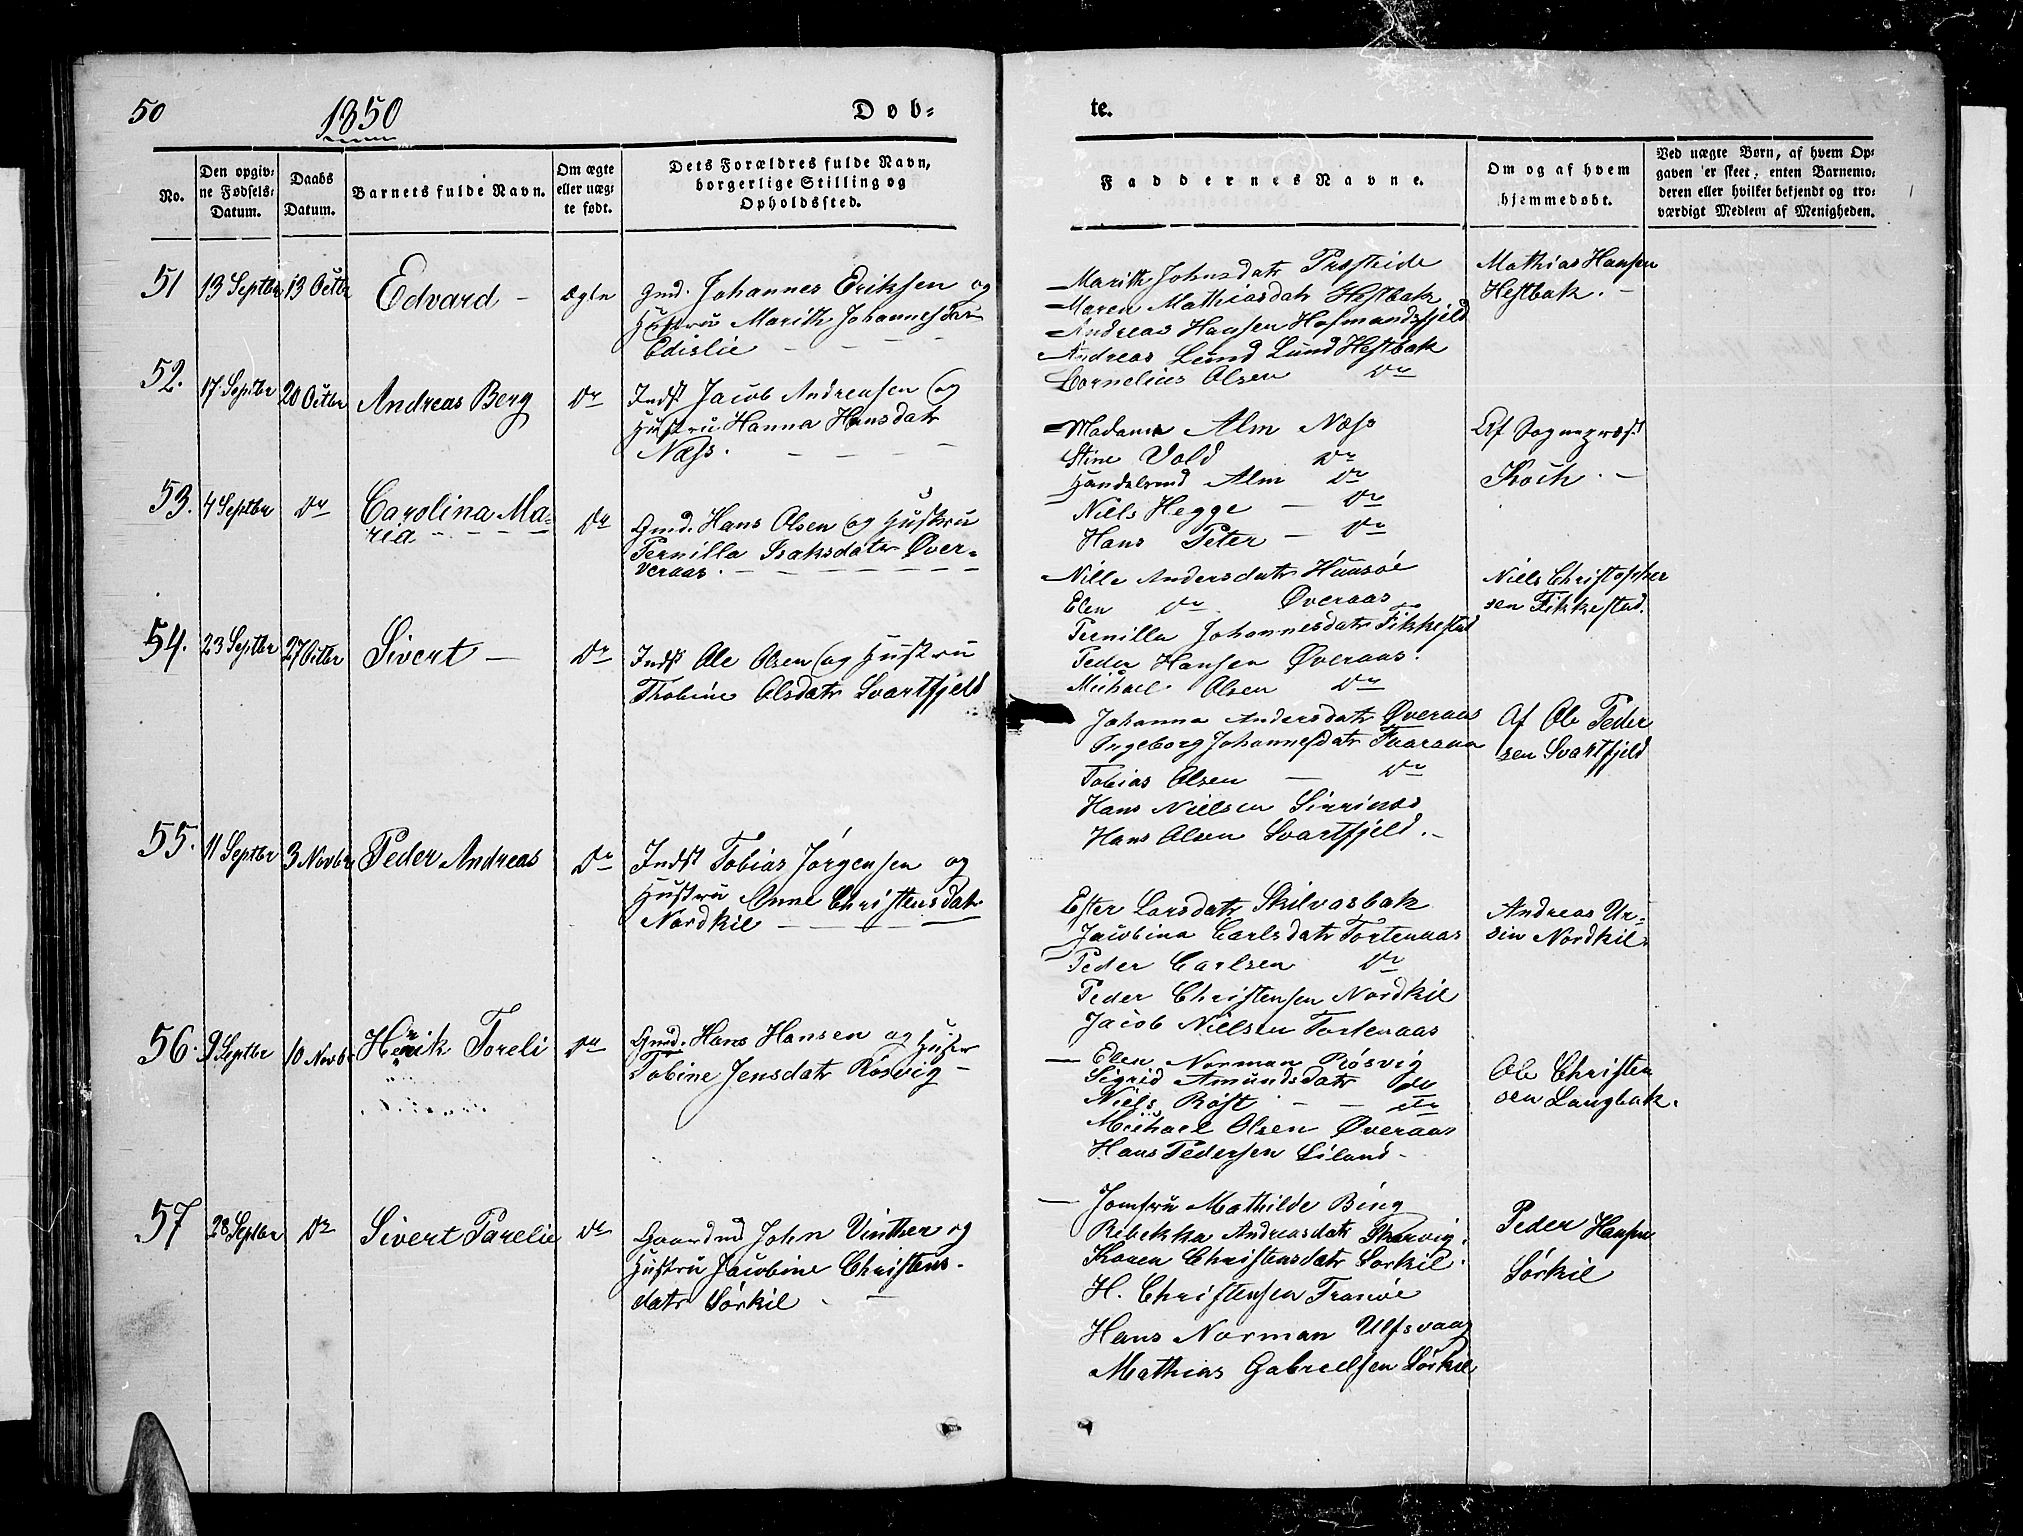 50
1850
Døb=
te.
No.
Den opgiv=
ne Fødsels=
Datum.
Daabs
Datum.
Barnets fulde Navn.
Om ægte
eller uæg=
te født.
Dets Forældres fulde Navn,
borgerlige Stilling og
Opholdssted.
Faddernes Navne.
Om og af hvem
hjemmedøbt.
Ved uægte Børn, af hvem Op=
gaven er skeet; enten Barnemo=
deren eller hvilket bekjendt og tro=
værdigt Medlem af Menigheden.
51
13 Septbr
13 Octbr
Edvard -
ægte
Gmd. Johannes Eriksen og
Hustru Marith Johannesdatr
Edislie
Marith Johnsdatr Præsteide
Maren Mathiasdatr Hestbak
Andreas Hansen Hofmandsfjeld
Andreas Lund Lund Hestbak
Cornelius Olsen Do
Mathias Hansen
Hestbak. -
52.
17 Septbr
20 Octbr
Andreas Berg
Do
Indst Jacob Andreasen og
Hustru Hanna Hansdatr
Næss.
Madame Alm Næss
Stine Vold Do
Handelsmd Alm Do
Niels Hegge - Do
Hans Peter - Do
Af Sognepræst
Koch. -
53.
4 Septbr
Do
Carolina Ma-
ria
Do
Gmd. Hans Olsen og Hustru
Pernilla Isaksdatr Øver-
veraas.
Nille Andersdatr Hunsøe
Elen Do Øveraas
Pernilla Johannesdatr Fikkestad
Peder Hansen Øveraas.
Michael Olsen Do
Niels Christopher
sen Fikkestad.
54.
23 Septbr
27 Octbr
Sivert -
Do
Indst Ole Olsen og Hustru
Thobine Olsdatr Svartfjeld
Johanna Andersdatr Øveraas
Ingeborg Johannesdatr Tvaraaa
Tobias Olsen - Do
Hans Nielsen Sirrinæs
Hans Olsen Svartfjeld.
Af Ole Peder
sen Svartfjeld
55.
11 Septbr
3 Novbr
Peder Andreas
Do
Indst Tobias Jørgensen og
Hustru Anne Christensdatr
Nordkil
Ester Larsdatr Skilvasbak
Jacobina Carlsdatr Tortenaas
Peder Carlsen Do
Peder Christensen Nordkil
Jacob Nielsen Tortenaas
Andreas Ur-
sin Nordkil.
56.
9 Septbr
10 Novbr
Henrik Toreli
Do
Gmd. Hans Hansen og Hustru
Tobine Jensdatr Røsvig -
Elen Norman Røsvig
Sigrid Amundsdatr Do
Niels Røst - - Do
Michael Olsen Øveraas
Hans Pedersen Liland-
Ole Christen
sen Langbak.
57
28 Septbr
Do
Sivert Parelie
Do
Gaardmd John Vinther og
Hustru Jacobine Christens-
datr Sørkil. -
Jomfru Mathilde Bing
Rebekka Andreasdatr Skarvig.
Karen Christensdatr Sørkil.
H. Christensen Tranøe
Hans Norman Ulfsvaag
Mathias Gabrielsen Sørkil
Peder Hansen
Sørkil